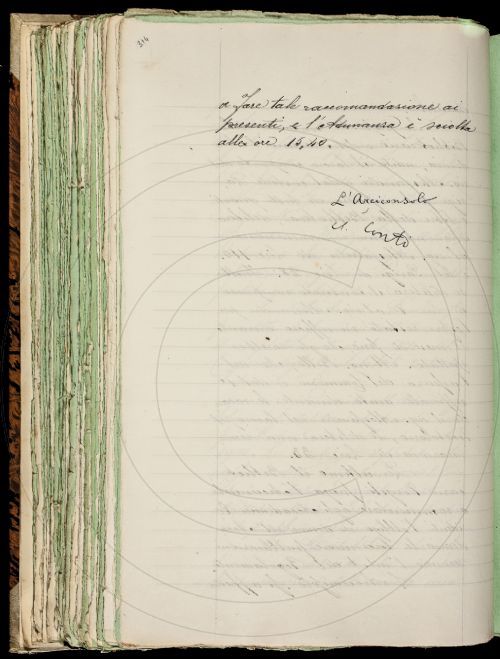 314
a fare tale raccomandazione ai
presenti, e l'Adunanza è sciolta
alle ore 15,40.
L'Arciconsolo
A. Conti